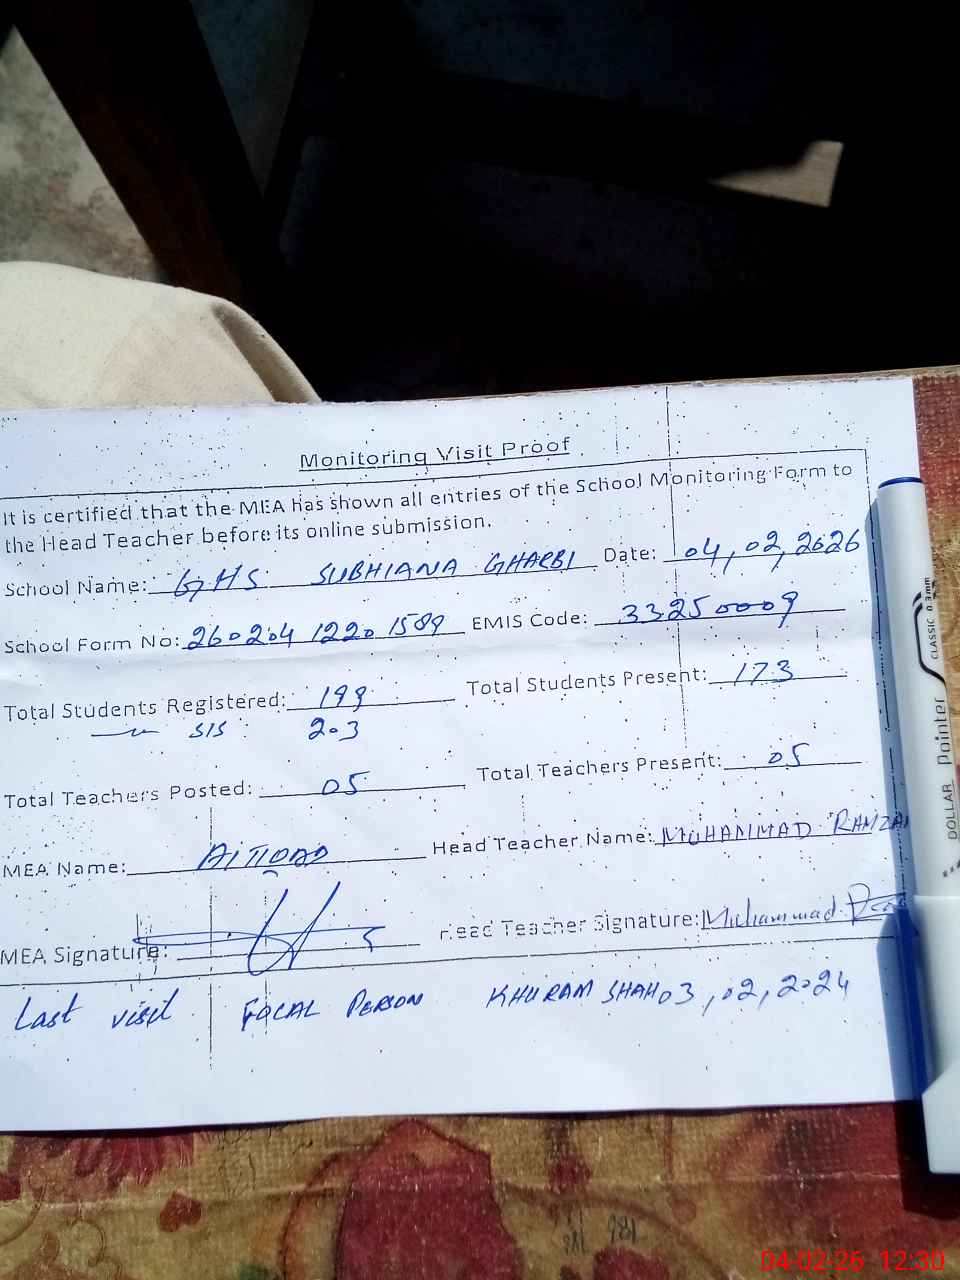 Monitoring Visit Proof
It is certified that the MEA has shown all entries of the School Monitoring Form to
the Head Teacher before its online submission.
School Name: GHS SUBHIANA GHARBI Date: 04, 02, 2026
School Form No: 260204 1220 1589 EMIS Code: 33250009
Total Students Registered: 199 Total Students Present: 173
SIS : 203
Total Teachers Posted: 05 Total Teachers Present: 05
MEA Name: Head Teacher Name: MUHAMMAD RAMZA
MEA Signature: Head Teacher Signature: Muhammad
Last visit FOCAL PERSON KHURAM SHAH 03, 02, 2024
CLASSIC 0.3mm
DOLLAR Pointer
04-02-26 12:30